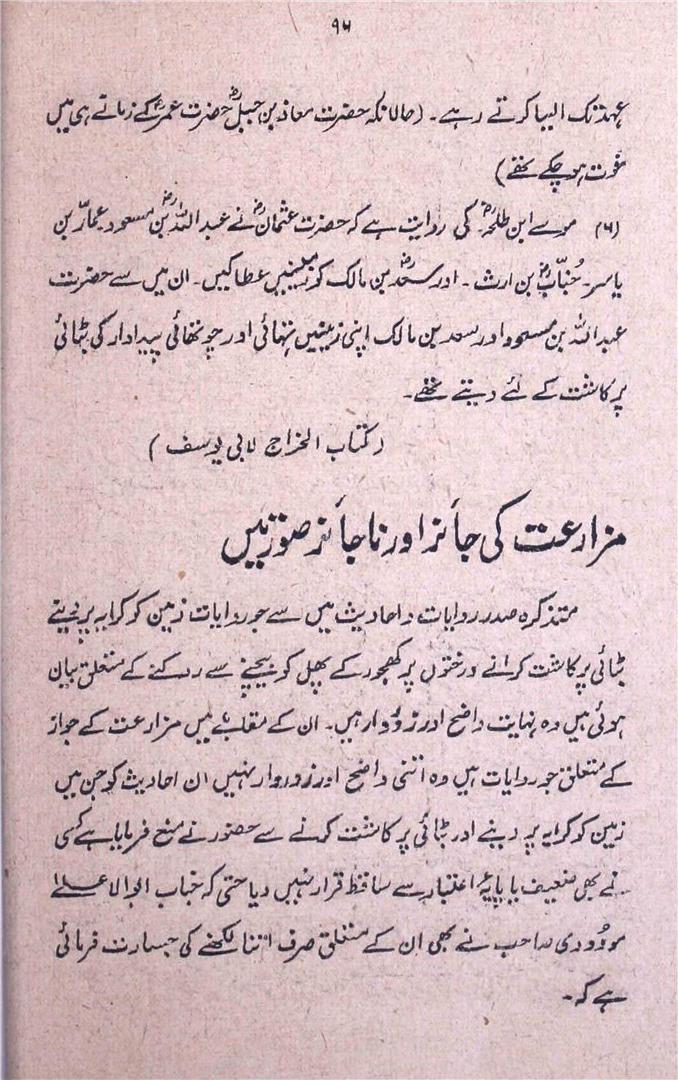 ۹۶
عہد تک ایسا کرتے رہے۔ (حالانکہ حضرت معاذ بن جبلؓ حضرت عمرؓ کے زمانے ہی میں
فوت ہو چکے تھے)
(۶) موسےٰ ابن طلحہؓ۔ کی روایت ہے کہ حضرت عثمانؓ نے عبداللہؓ بن مسعود عمارؓ بن
یاسر۔ خُبابؓ بن ارث۔ اور سعدؓ بن مالک کو زمینیں عطا کیں۔ ان میں سے حضرت
عبداللہ بن مسعود اور سعد بن مالک اپنی زمینیں تہائی اور چوتھائی پیداوار کی بٹائی
پر کاشت کے لئے دیتے تھے۔
(کتاب الخراج لابی یوسف)
مزارعت کی جائز اور ناجائز صورتیں
متذکرہ صدر روایات و احادیث میں سے جو روایات زمین کو کرایہ پر دینے
بٹائی پر کاشت کرانے درختوں پر کھجور کے پھل کو بیچنے سے روکنے کے متعلق بیان
ہوئی ہیں وہ نہایت واضح اور زوردار ہیں۔ ان کے مقابلے میں مزارعت کے جواز
کے متعلق جو روایات ہیں وہ اتنی واضح اور زوردار نہیں ان احادیث کو جن میں
زمین کو کرایہ پر دینے اور بٹائی پر کاشت کرنے سے حضور نے منع فرمایا ہے کسی
نے بھی ضعیف یا پایۂ اعتبار سے ساقط قرار نہیں دیا حتی کہ جناب ابوالاعلےٰ
مودُودی صاحب نے بھی ان کے متعلق صرف اتنا لکھنے کی جسارت فرمائی
ہے کہ۔